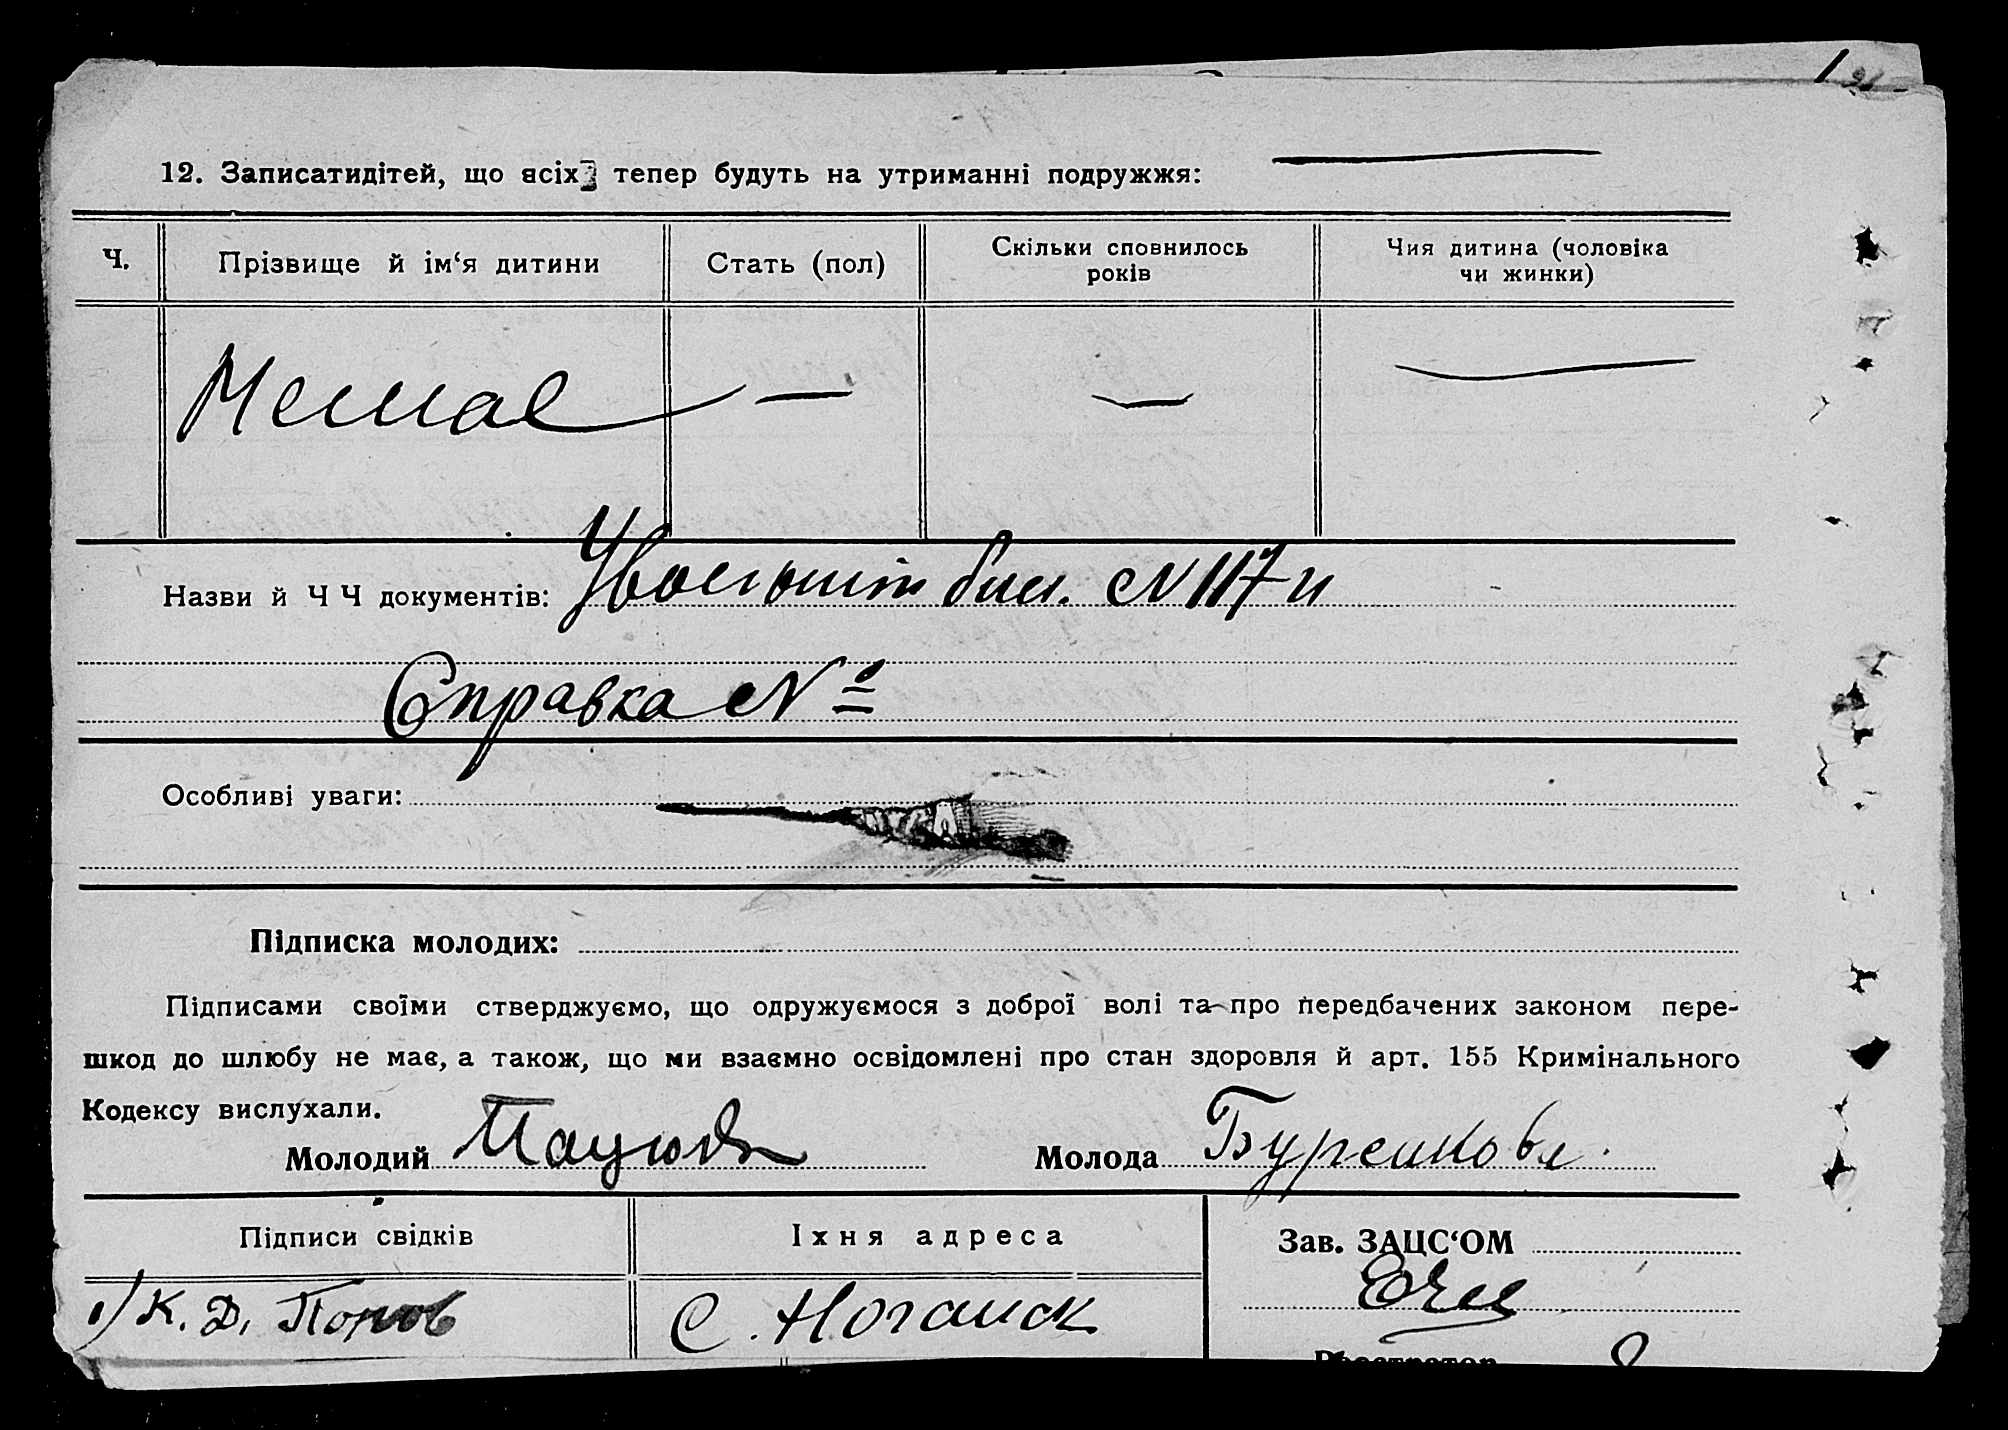 12. Записатидітей, що всіх тепер будуть на утриманні подружжя:
Ч. Прізвище й ім‘я дитини Стать (пол) Скільки сповнилось років Чия дитина (чоловіка чи жинки)
Немає — — —
Назви й Ч Ч документів: бил. № 117 и
Справка №
Особливі уваги:
Підписка молодих:
Підписами своїми стверджуємо, що одружуємося з доброї волі та про передбачених законом пере-
шкод до шлюбу не має, а також, що ми взаємно освідомлені про стан здоровля й арт. 155 Кримінального
Кодексу вислухали.
Молодий Молода
Підписи свідків Їхня адреса Зав. ЗАЦС‘ОМ
1) К. Д. Попов С. Ногайск
Реєстратор